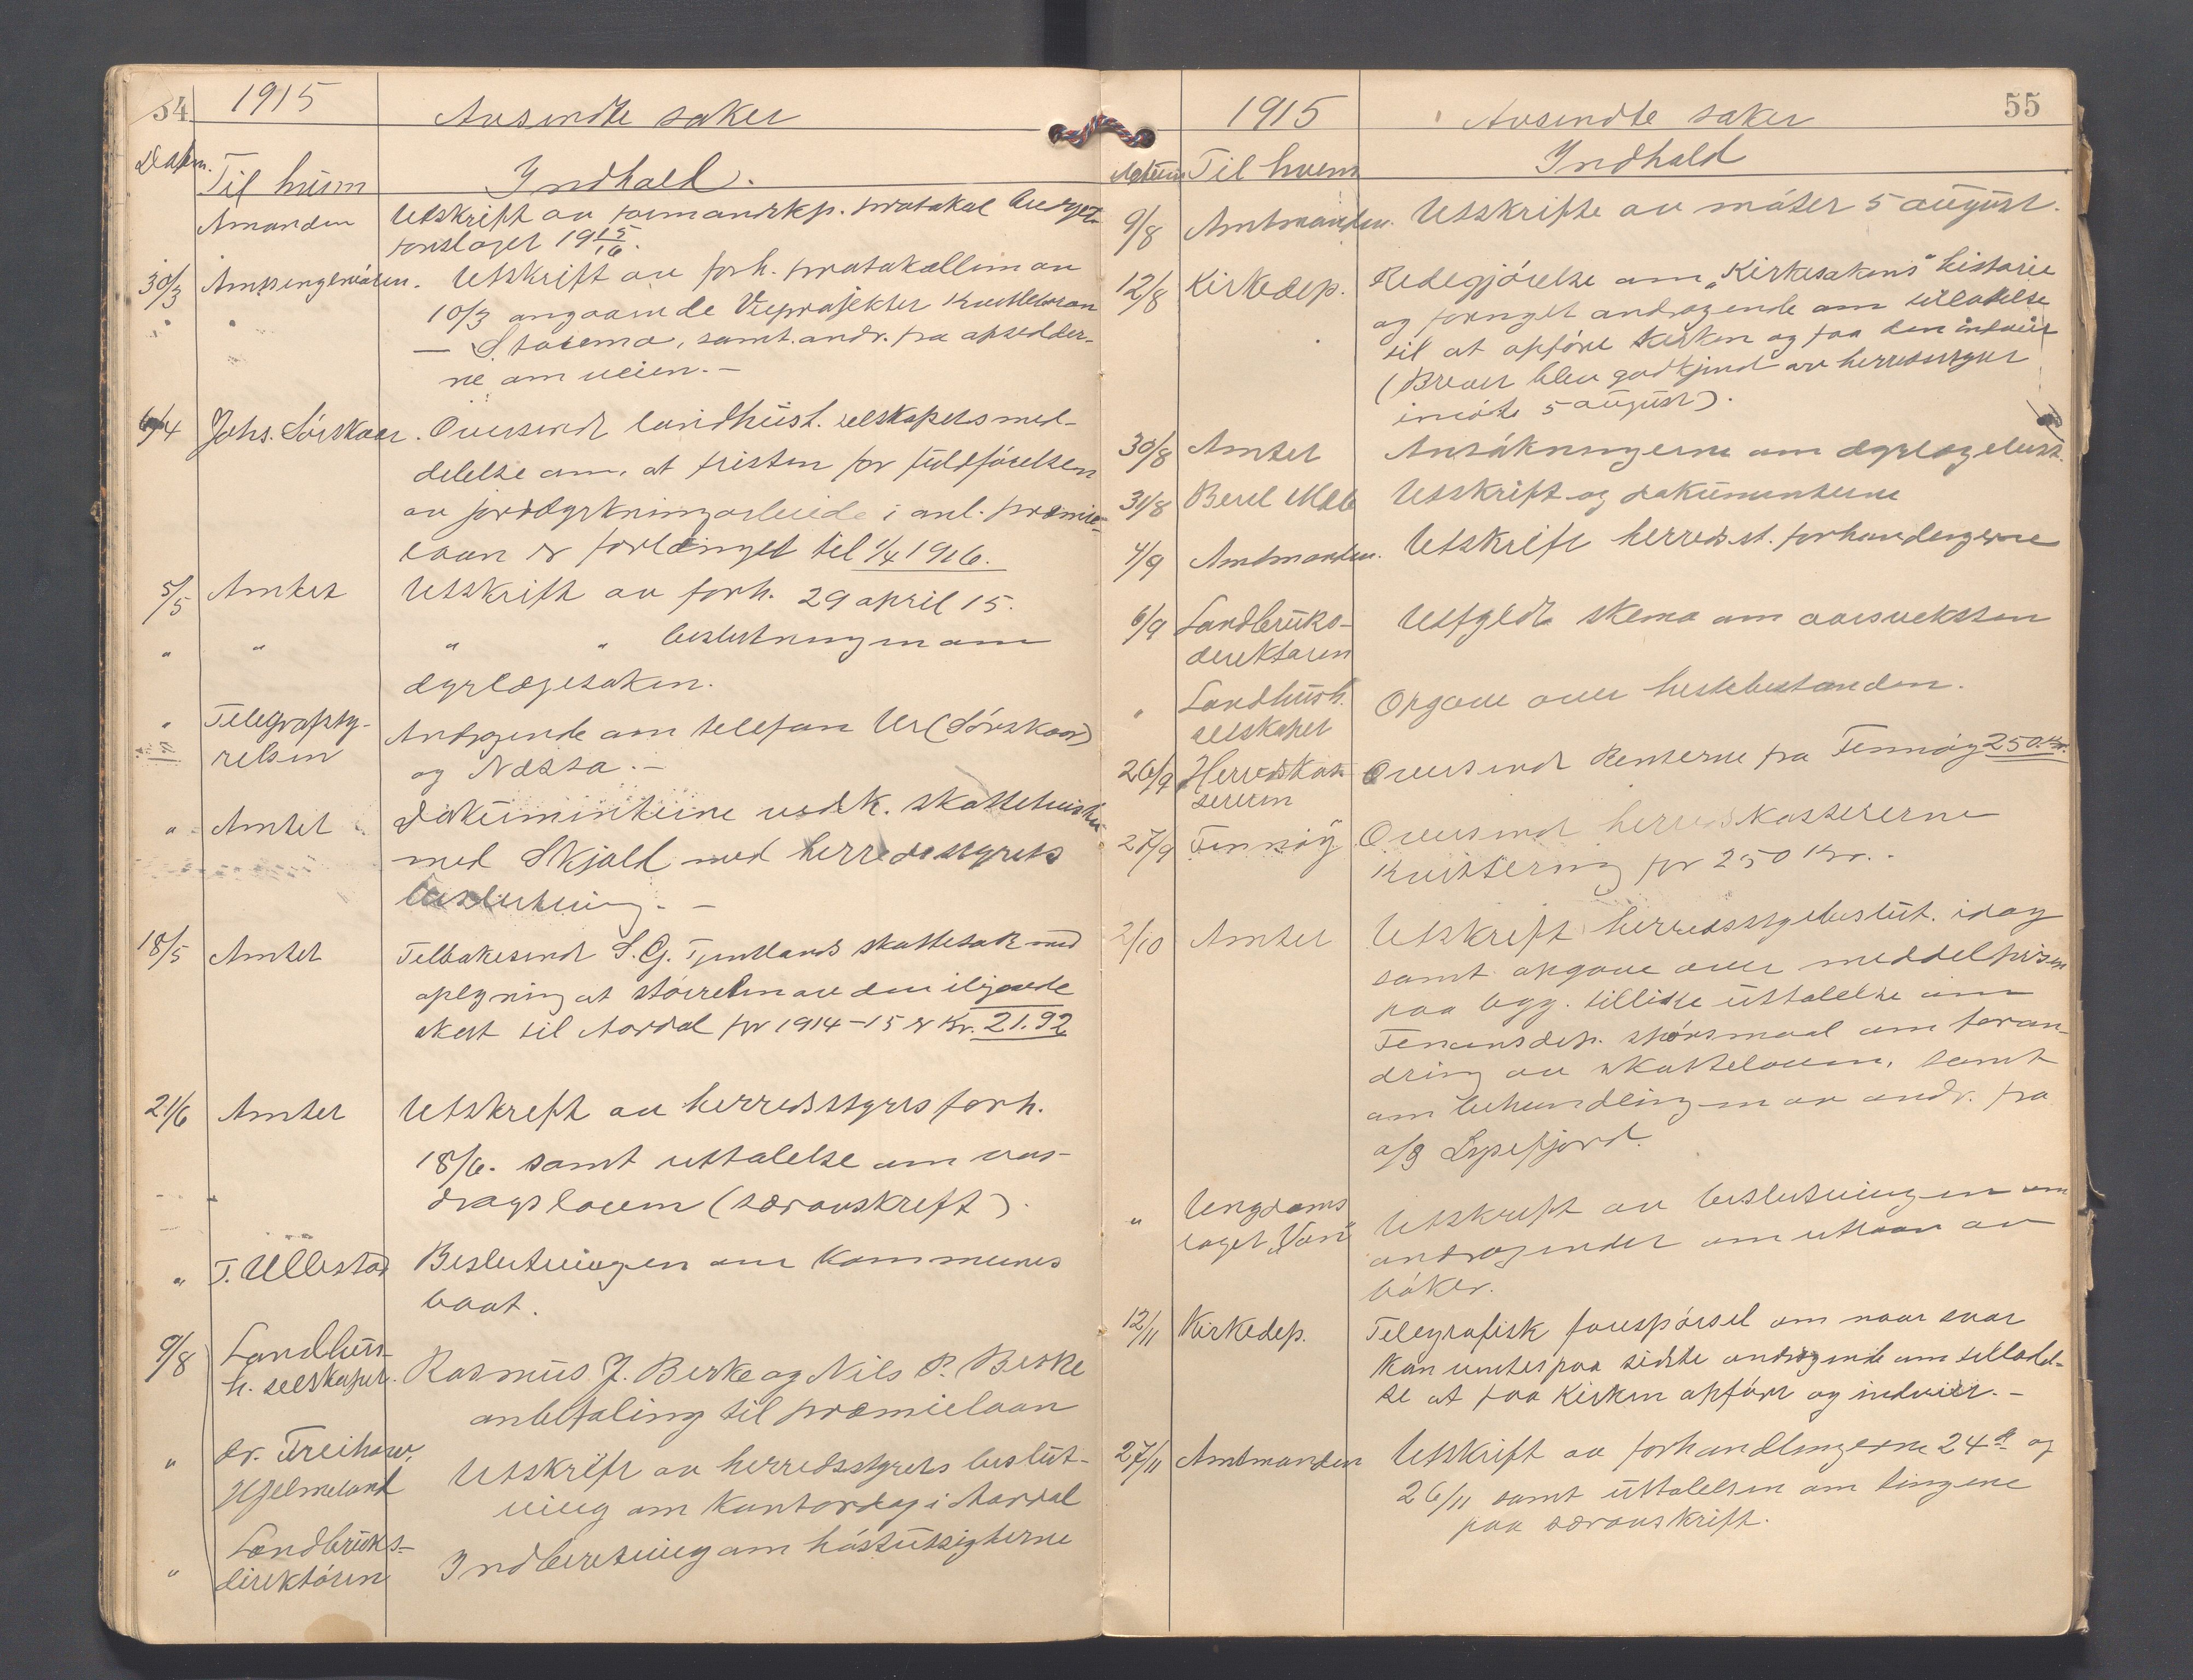 54 1915 Avsendte saker
Datum. Til hvem Indhold.
Amanden Utskrift av formandskp. protokol budget
forslaget 1915/16
30/3 Amtsingeniøren. Utskrift av forh. protokollen av
" " 10/3 angaaende Veiprosjektet
— Starema, samt. andr. fra opsedder-
ne om veien. -
6/4 Johs. Sørskaar. Oversendt landhush. selskapets med-
delelse om, at fristen for fuldførelsen
av jorddyrkningarbeide i anl. præmie-
laan er forlænget til 1/4 1916.
5/5 Amtet Utskrift av forh. 29 april 15.
" " " " beslutningen om
dyrlægesaken.
" Telegrafsty- Andragende om telefon Ur (Sørskaar)
relsen og Nessa. -
" Amtet Dokumenterne vedk. skattetvisten
med Skjold med herredsstyrets
beslutning. -
18/5 Amtet Tilbakesendt S. G. Tjentlands skattesak med
oplysning at størrelsen av den ilignede
skat til Aardal for 1914-15 er Kr. 21.92
21/6 Amtet Utskrift av herredsstyres forh.
18/6. samt uttalelse om vas-
dragsloven (særavskrift).
" T. Ullestad Beslutningen om Kommunes
baat.
9/8 Landhus-
h. selskapet. Rasmus J. Berke og Nils P. Berke
anbefaling til præmielaan
" dr. Treihow, Utskrift av herredsstyrets beslut-
Hjelmeland ning om Kontordag i Aardal
" Landbruks-
direktøren Indberetning om høstutsigterne
1915 Avsendte saker 55
Datum Til hvem Indhold
9/8 Amtmanden. Utskrifte av møtet 5 august.
12/8 Kirkedep. Redegjørelse om "Kirkesakens" historie
og fornyet andragende om tilladelse
til at opføre kirken og faa den indviet
(Brevet blev godkjend av herredsstyret
i møte 5 august).
30/8 Amtet Ansøkningerne om dyrlægebust.
31/8 Berel Utskrift og dokumenterne
4/9 Amtmanden. Utskrift herredsst. forhandlingerne
6/9 Landbruks- Utfyldt skema om aarsveksten
direktøren
" Landhush. Opgave over hestebestanden.
selskapet
26/9 Herredskas- Oversendt Renterne fra Finnøy 250 kr.
sereren
27/9 Finnøy Oversendt herredskassererne
Kvittering for 250 Kr. -
2/10 Amtet Utskrift herredsstybeslut. idag
samt opgave over meddelprisen
paa bygg. tillike uttalelse om
Finansdep. spørsmaal om foran-
dring av skatteloven, samt
om behandlingen av andr. fra
a/s Lysefjord.
" Ungdoms Utskrift av beslutningen om
laget "Von" andragendet om utlaan av
bøker.
12/11 Kirkedep. Telegrafisk forespørsel om naar svar
kan ventes paa sidste andragende om tilladel-
se at faa Kirken opført og indviet. -
27/11 Amtmanden Utskrift av forhandlingerne 24de og
26/11 samt uttalelsen om tingene
paa særavskrift.